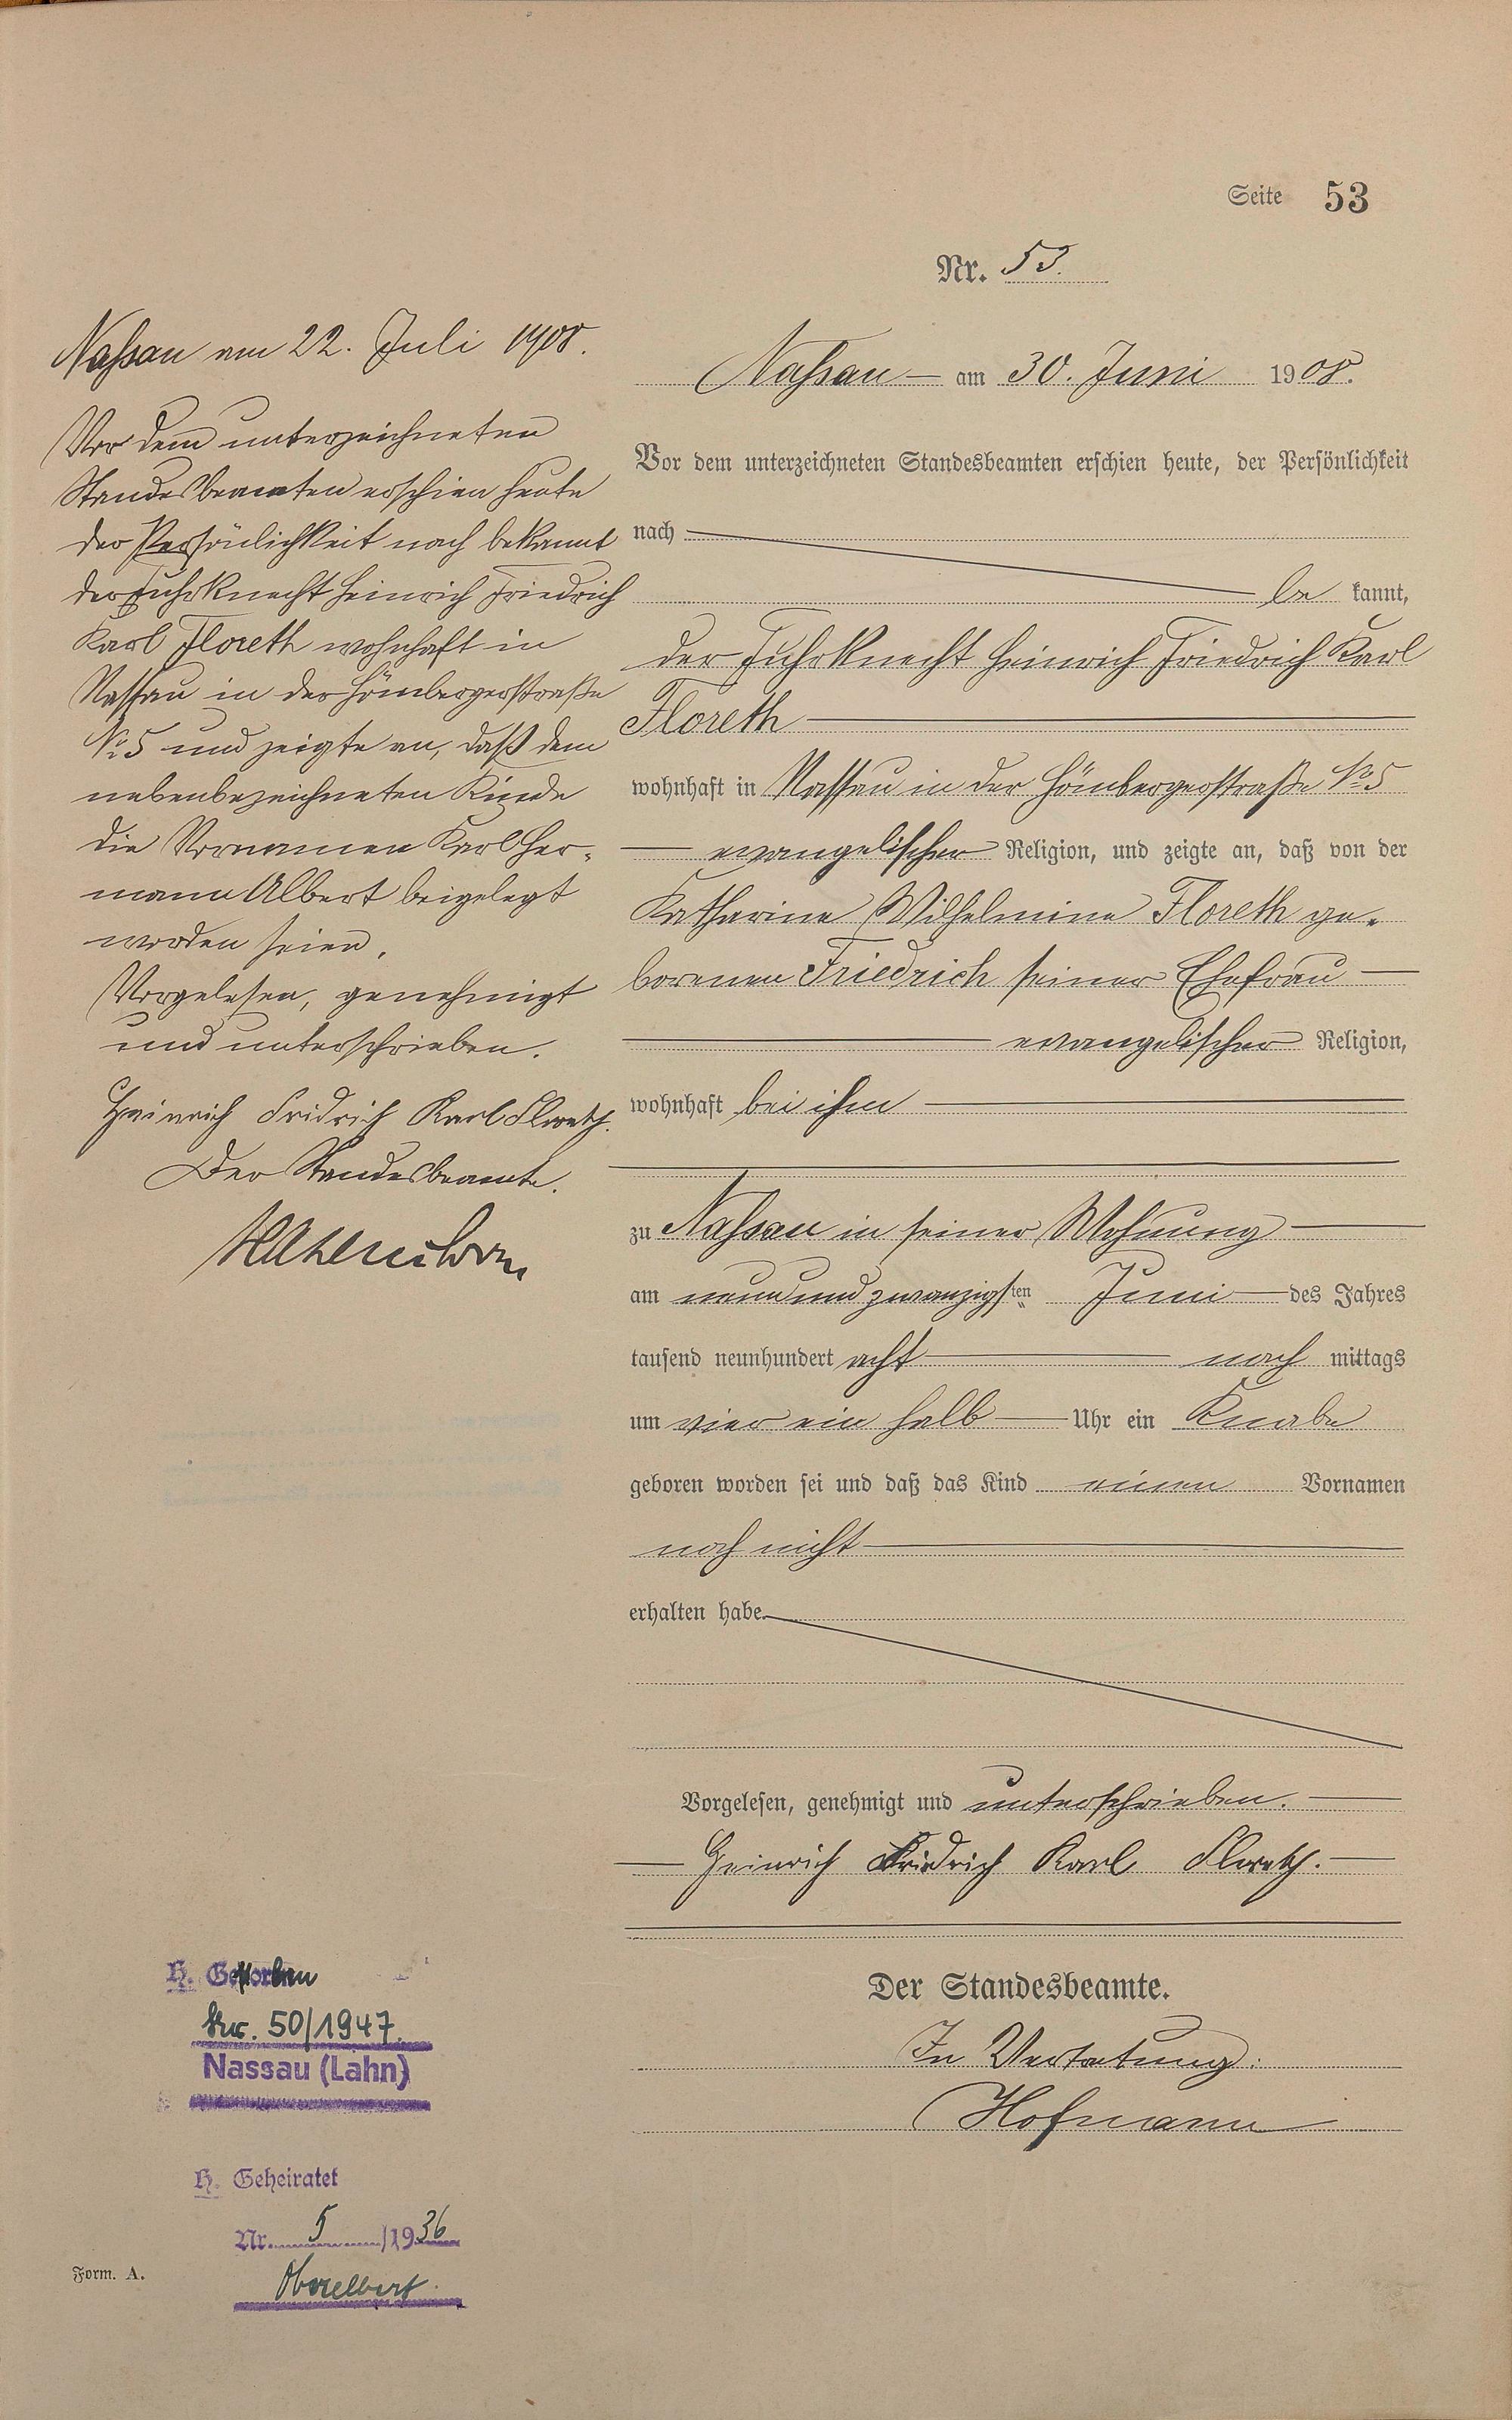 Seite 53
Nr. 53.
Nassau am 30. Juni 1908.
Vor dem unterzeichneten Standesbeamten erschien heute, der Persönlichkeit
nach
be kannt,
der Fuhrknecht Heinrich Friedrich Karl
Floreth
wohnhaft in Nassau in der Hömbergerstraße No 5
evangelischer Religion, und zeigte an, daß von der
Katharine Wilhelmine Floreth ge-
borenen Friedrich seiner Ehefrau
evangelischer Religion,
wohnhaft bei ihm
zu Nassau in seiner Wohnung
am neunundzwanzigsten Juni des Jahres
tausend neunhundert acht nach mittags
um vier ein halb Uhr ein Knabe
geboren worden sei und daß das Kind einen Vornamen
noch nicht
erhalten habe.
Vorgelesen, genehmigt und unterschrieben.
Heinrich Friedrich Karl Floreth.
Der Standesbeamte.
In Vertretung:
Hofmann
Nassau am 22. Juli 1908.
Vor dem unterzeichneten
Standesbeamten erschien heute
der Persönlichkeit nach bekannt
der Fuhrknecht Heinrich Friedrich
Karl Floreth wohnhaft in
Nassau in der Hömbergerstraße
No 5 und zeigte an, daß dem
nebenbezeichneten Kinde
die Vornamen Karl Her-
mann Albert beigelegt
worden seien.
Vorgelesen, genehmigt
und unterschrieben.
Heinrich Fridrich Karl Floreth.
Der Standesbeamte.
H. Gestorben
Nr. 50/1947.
Nassau (Lahn)
H. Geheiratet
Nr. 5 /1936
Oberelbert
Form. A.